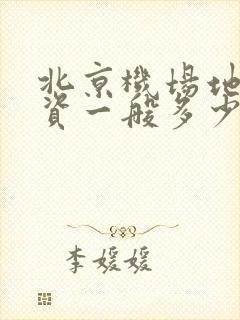 北京機場地
資一般多少
李媛媛